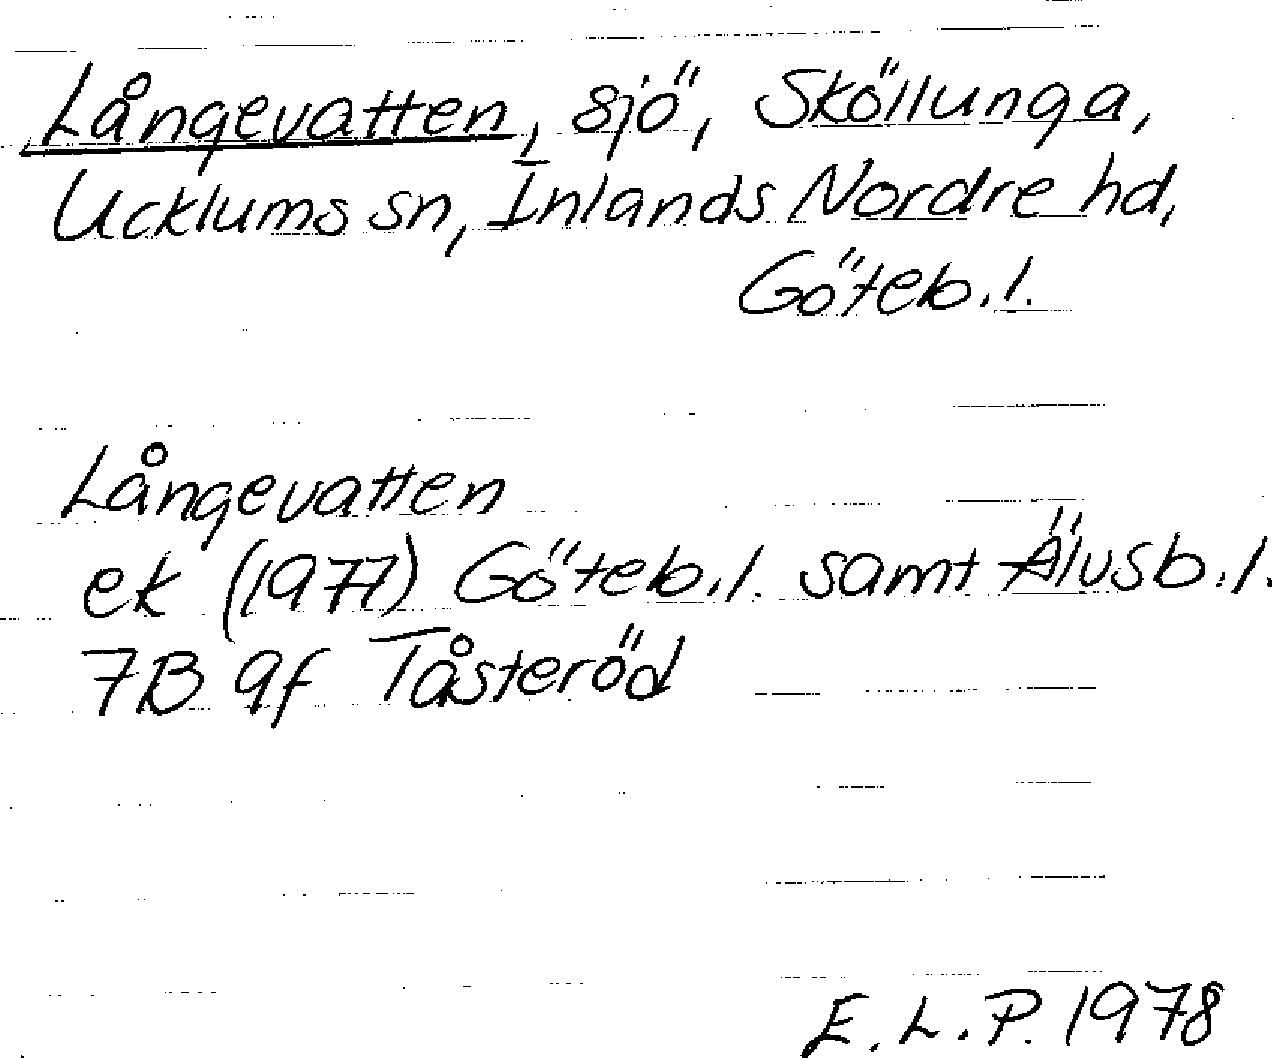 Långevatten, sjö, Sköllunga,
Ucklums sn, Inlands Nordre hd,
Göteb.l.
Långevatten
ek (1977) Göteb.l. samt Älvsb.l.
7B 9f Tåsteröd
E.L.P. 1978